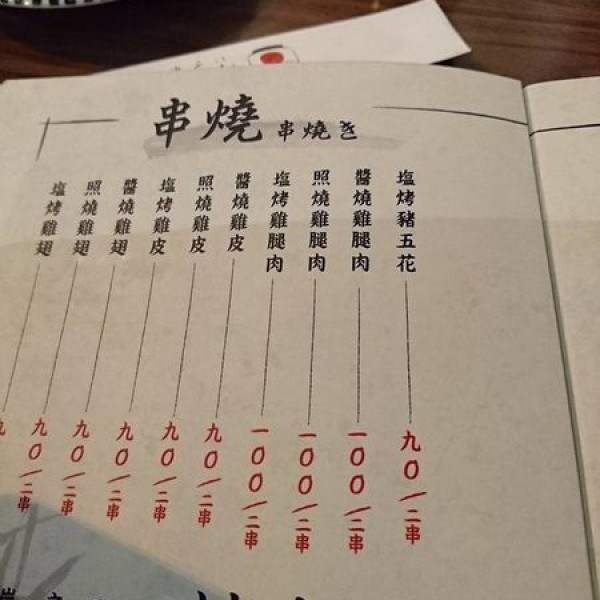 串燒 串燒き
塩烤豬五花 九0/二串
醬燒雞腿肉 一00/二串
照燒雞腿肉 一00/二串
塩烤雞腿肉 一00/二串
醬燒雞皮 九0/二串
照燒雞皮 九0/二串
塩烤雞皮 九0/二串
醬燒雞翅 九0/二串
照燒雞翅 九0/二串
塩烤雞翅 九